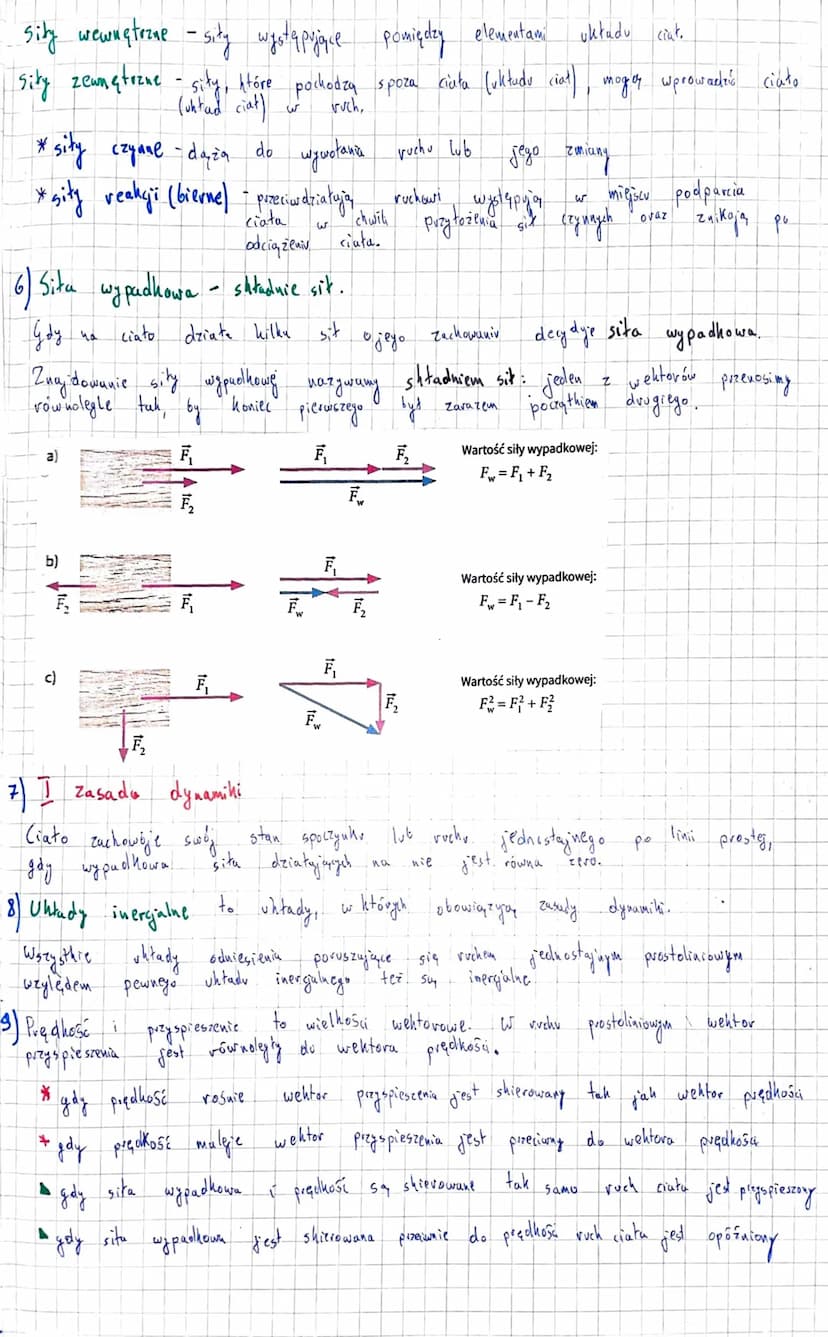 siły wewnętrzne - siły występujące pomiędzy elementami układu ciał.
siły zewnętrzne - siły, które pochodzą spoza ciała (układu ciał), mogą wprowadzić ciało
(układ ciał) w ruch.
* siły czynne - dążą do wywołania ruchu lub jego zmiany
* siły reakcji (bierne) - przeciwdziałują ruchowi występują w miejscu podparcia
ciała w chwili przyłożenia sił czynnych oraz znikają po
odciążeniu ciała.
6) Siła wypadkowa - składnie sił.
Gdy na ciało działa kilka sił o jego zachowaniu decyduje siła wypadkowa.
Znajdowanie siły wypadkowej nazywamy składniem sił: jeden z wektorów przenosimy
równolegle tak, by koniec pierwszego był zarazem początkiem drugiego.
a) F₁ F₂ F₁ F₂ Fw Wartość siły wypadkowej:
Fw = F₁ + F₂
b) F₂ F₁ F₁ Fw F₂ Wartość siły wypadkowej:
Fw = F₁ - F₂
c) F₁ F₂ F₁ F₂ Fw Wartość siły wypadkowej:
Fw² = F₁² + F₂²
7) I zasada dynamiki
Ciało zachowuje swój stan spoczynku lub ruchu jednostajnego po linii prostej,
gdy wypadkowa siła działających na nie jest równa zero.
8) Układy inercjalne to układy, w których obowiązują zasady dynamiki.
Wszystkie układy odniesienia poruszające się ruchem jednostajnym prostoliniowym
względem pewnego układu inercjalnego też są inercjalne.
9) Prędkość i przyspieszenie to wielkości wektorowe. W ruchu prostoliniowym wektor
przyspieszenia jest równoległy do wektora prędkości.
* gdy prędkość rośnie wektor przyspieszenia jest skierowany tak jak wektor prędkości
* gdy prędkość maleje wektor przyspieszenia jest przeciwny do wektora prędkości
gdy siła wypadkowa i prędkość są skierowane tak samo ruch ciała jest przyspieszony
gdy siła wypadkowa jest skierowana przeciwnie do prędkość ruch ciała jest opóźniony